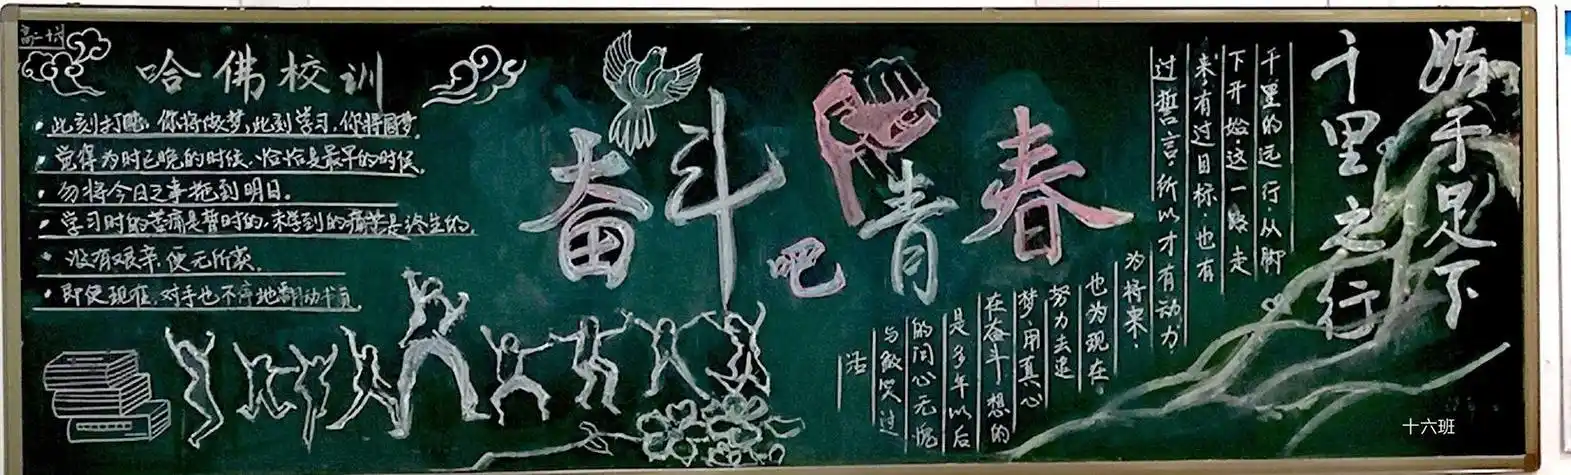 高二十六
哈佛校训
·此刻打盹，你将做梦，此刻学习，你将圆梦。
·觉得为时已晚的时候，恰恰是最早的时候。
·勿将今日之事拖到明日。
·学习时的苦痛是暂时的，未学到的痛苦是终生的。
·没有艰辛，便无所获。
·即使现在，对手也不停地翻动书页。
奋斗吧青春
始于足下
千里之行
千里的远行，从脚
下开始，这一路走
来，有过目标，也有
过誓言，所以才有动力，
为将来，
也为现在，
努力去追
梦，用真心
在奋斗，想的
是多年以后
的问心无愧
与敢哭过
活
十六班